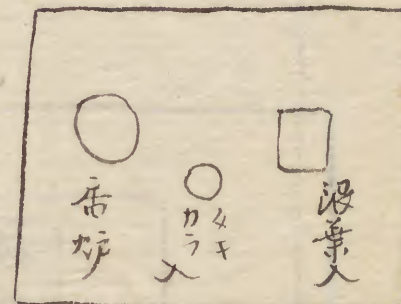 銀葉入
タキ
カラ
入
香炉